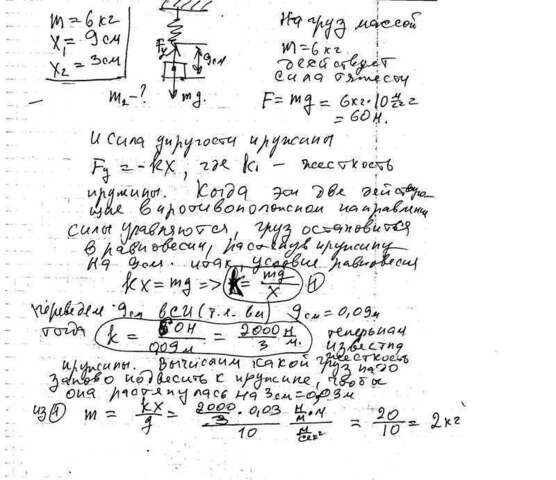 m = 6 кг
x₁ = 9 см
x₂ = 3 см
m₂ - ?
Fy
9 см
mg.
На груз массой
m = 6 кг
действует
сила тяжести
F = mg = 6 кг · 10 м/с²
= 60 н.
и сила упругости пружины
Fy = -kx, где k₁ - жесткость
пружины. Когда эти две действую
щие в противоположном направлении
силы уравняются, груз остановится
в равновесии, растянув пружину
на 3 см. итак, условие равновесия
kx = mg => k = mg/x (1)
переведем 9 см в СИ (т.е. в м) 9 см = 0,09 м
тогда k = 60 Н / 0,09 м = 2000/3 н/м. теперь нам
известна
жесткость
пружины. Вычислим какой груз надо
заново подвесить к пружине, чтобы
она растянулась на 3 см = 0,03 м
из (1) m = kx/g = (2000/3 · 0,03)/10 = 20/10 = 2 кг